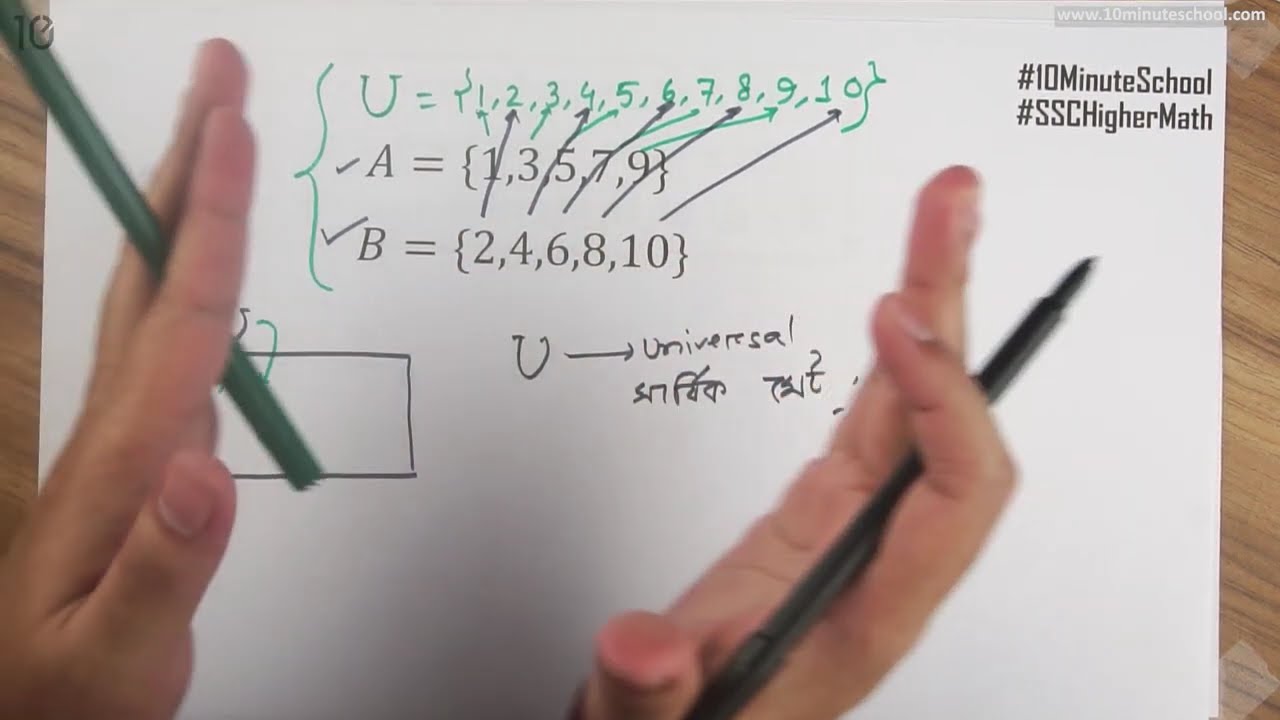 10
www.10minuteschool.com
#10MinuteSchool
#SSCHigherMath
U = {1,2,3,4,5,6,7,8,9,10}
A = {1,3,5,7,9}
B = {2,4,6,8,10}
U
U → universal
সার্বিক সেট